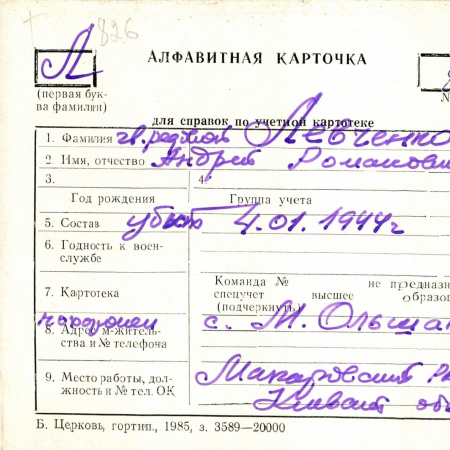 826
Л
АЛФАВИТНАЯ КАРТОЧКА
(первая бук-
ва фамилии)
№
для справок по учетной картотеке
1. Фамилия гв. рядовой Левченко
2. Имя, отчество Андрей Романови
3. 4.
Год рождения Группа учета
5. Состав убит 4.01.1944г
6. Годность к воен-
службе
Команда № не предназна
7. Картотека спецучет высшее образо
(подчеркнуть)
похоронен с. М. Ольша
8. Адрес м-жительства и № телефона
9. Место работы, дол- Макаровский
жность и № тел. ОК Киевской об
Б. Церковь, гортип., 1985, з. 3589—20000